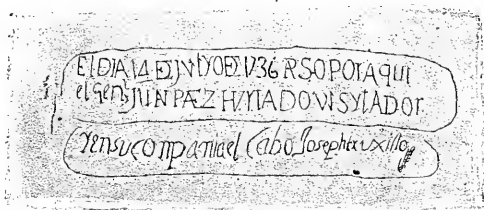 El DIA 14 DE JVLYO DE 1736 PASO POr AqUI
el Genl JUN PÆZ HVRTADO VISYTADOr
Y en su compania el Cabo Joseph truxillo